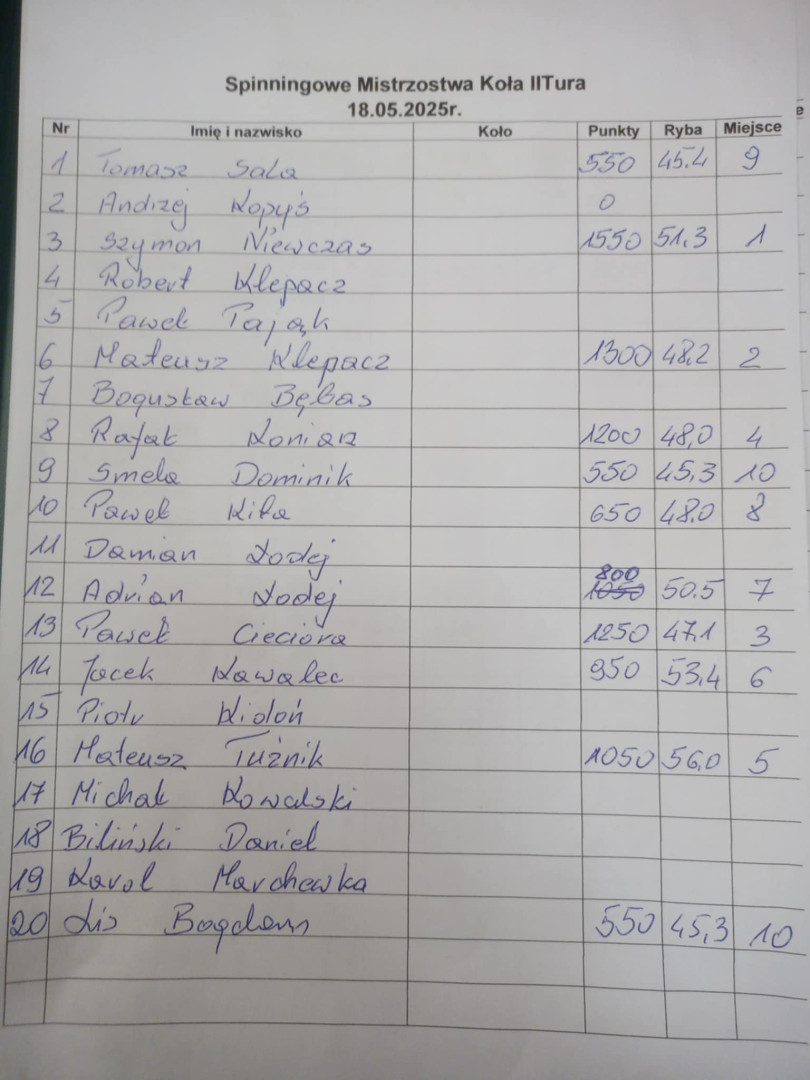 Spinningowe Mistrzostwa Koła IITura
18.05.2025r.
Nr Imię i nazwisko Koło Punkty Ryba Miejsce
1 Tomasz Sala 550 45.4 9
2 Andrzej Kopyś 0
3 Szymon Niewczas 1550 51.3 1
4 Robert Klepacz
5 Paweł Pająk
6 Mateusz Klepacz 1300 48,2 2
7 Bogusław Bębas
8 Rafał Koniarz 1200 48,0 4
9 Smela Dominik 550 45,3 10
10 Paweł Kiła 650 48.0 8
11 Damian Łodej
12 Adrian Łodej 1050 800 50.5 7
13 Paweł Cieciora 1250 47.1 3
14 Jacek Kawalec 950 53,4 6
15 Piotr Kidoń
16 Mateusz Tuźnik 1050 56,0 5
17 Michał Kowalski
18 Biliński Daniel
19 Karol Marchewka
20 Lis Bogdan 550 45,3 10
e